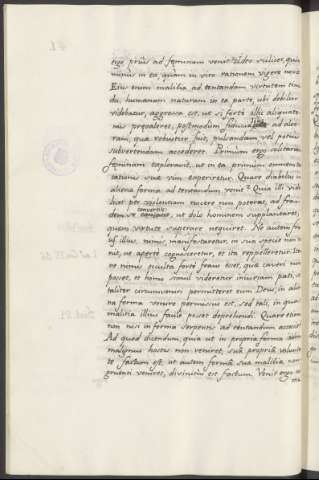 ergo prius ad foeminam venit? Ideo scilicet, quia
minus in ea, quam in viro rationem vigere novit.
Eius enim malitia ad tentandum virtutem timi-
da, humanam naturam in ea parte, ubi debilior
videbatur, aggressa est, ut si forte illic aliquate-
nus praevaleret, postmodum fiducialiter ad alte-
rum, qui robustior fuit, pulsandum vel potius
subvertendum accederet. Primum ergo solitariam
foeminam exploravit, ut in ea primum omnem ten-
tationis suae vim experiretur. Quare diabolus in
aliena forma ad tentandum venit? Quia illi vide-
bat per violentiam nocere non poterat, ad frau-
dem se convertit, ut dolo hominem supplantaret,
quem virtute superare nequiret. Ne autem fraus
illius nimis manifestaretur, in sua specie non ve-
nit, ne aperte cognosceretur, et ita repelleretur. Ite-
rum ne nimis occulta foret fraus eius, quae caveri non
posset, et homo simul videretur iniuriam pati, si
taliter circumveniri permitteret eum Deus, in alie-
na forma venire permissus est, sed tali, in qua
malitia illius facile posset deprehendi. Quare etiam
non nisi in forma serpentis ad tentandum accessit?
Ad quod dicendum, quia ut in propria forma
malignus hostis non veniret, sua propria volunta-
te factum est, ut autem formam sua malitia con-
gruenti veniret, divinitus est factum. Venit ergo